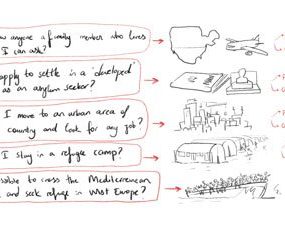 anyone a family member who lives
I can ask?
apply to settle in a 'developed'
as an asylum seeker?
I move to an urban area of
country and look for any job?
I stay in a refugee camp?
to cross the Mediterranean
and seek refuge in West Europe?